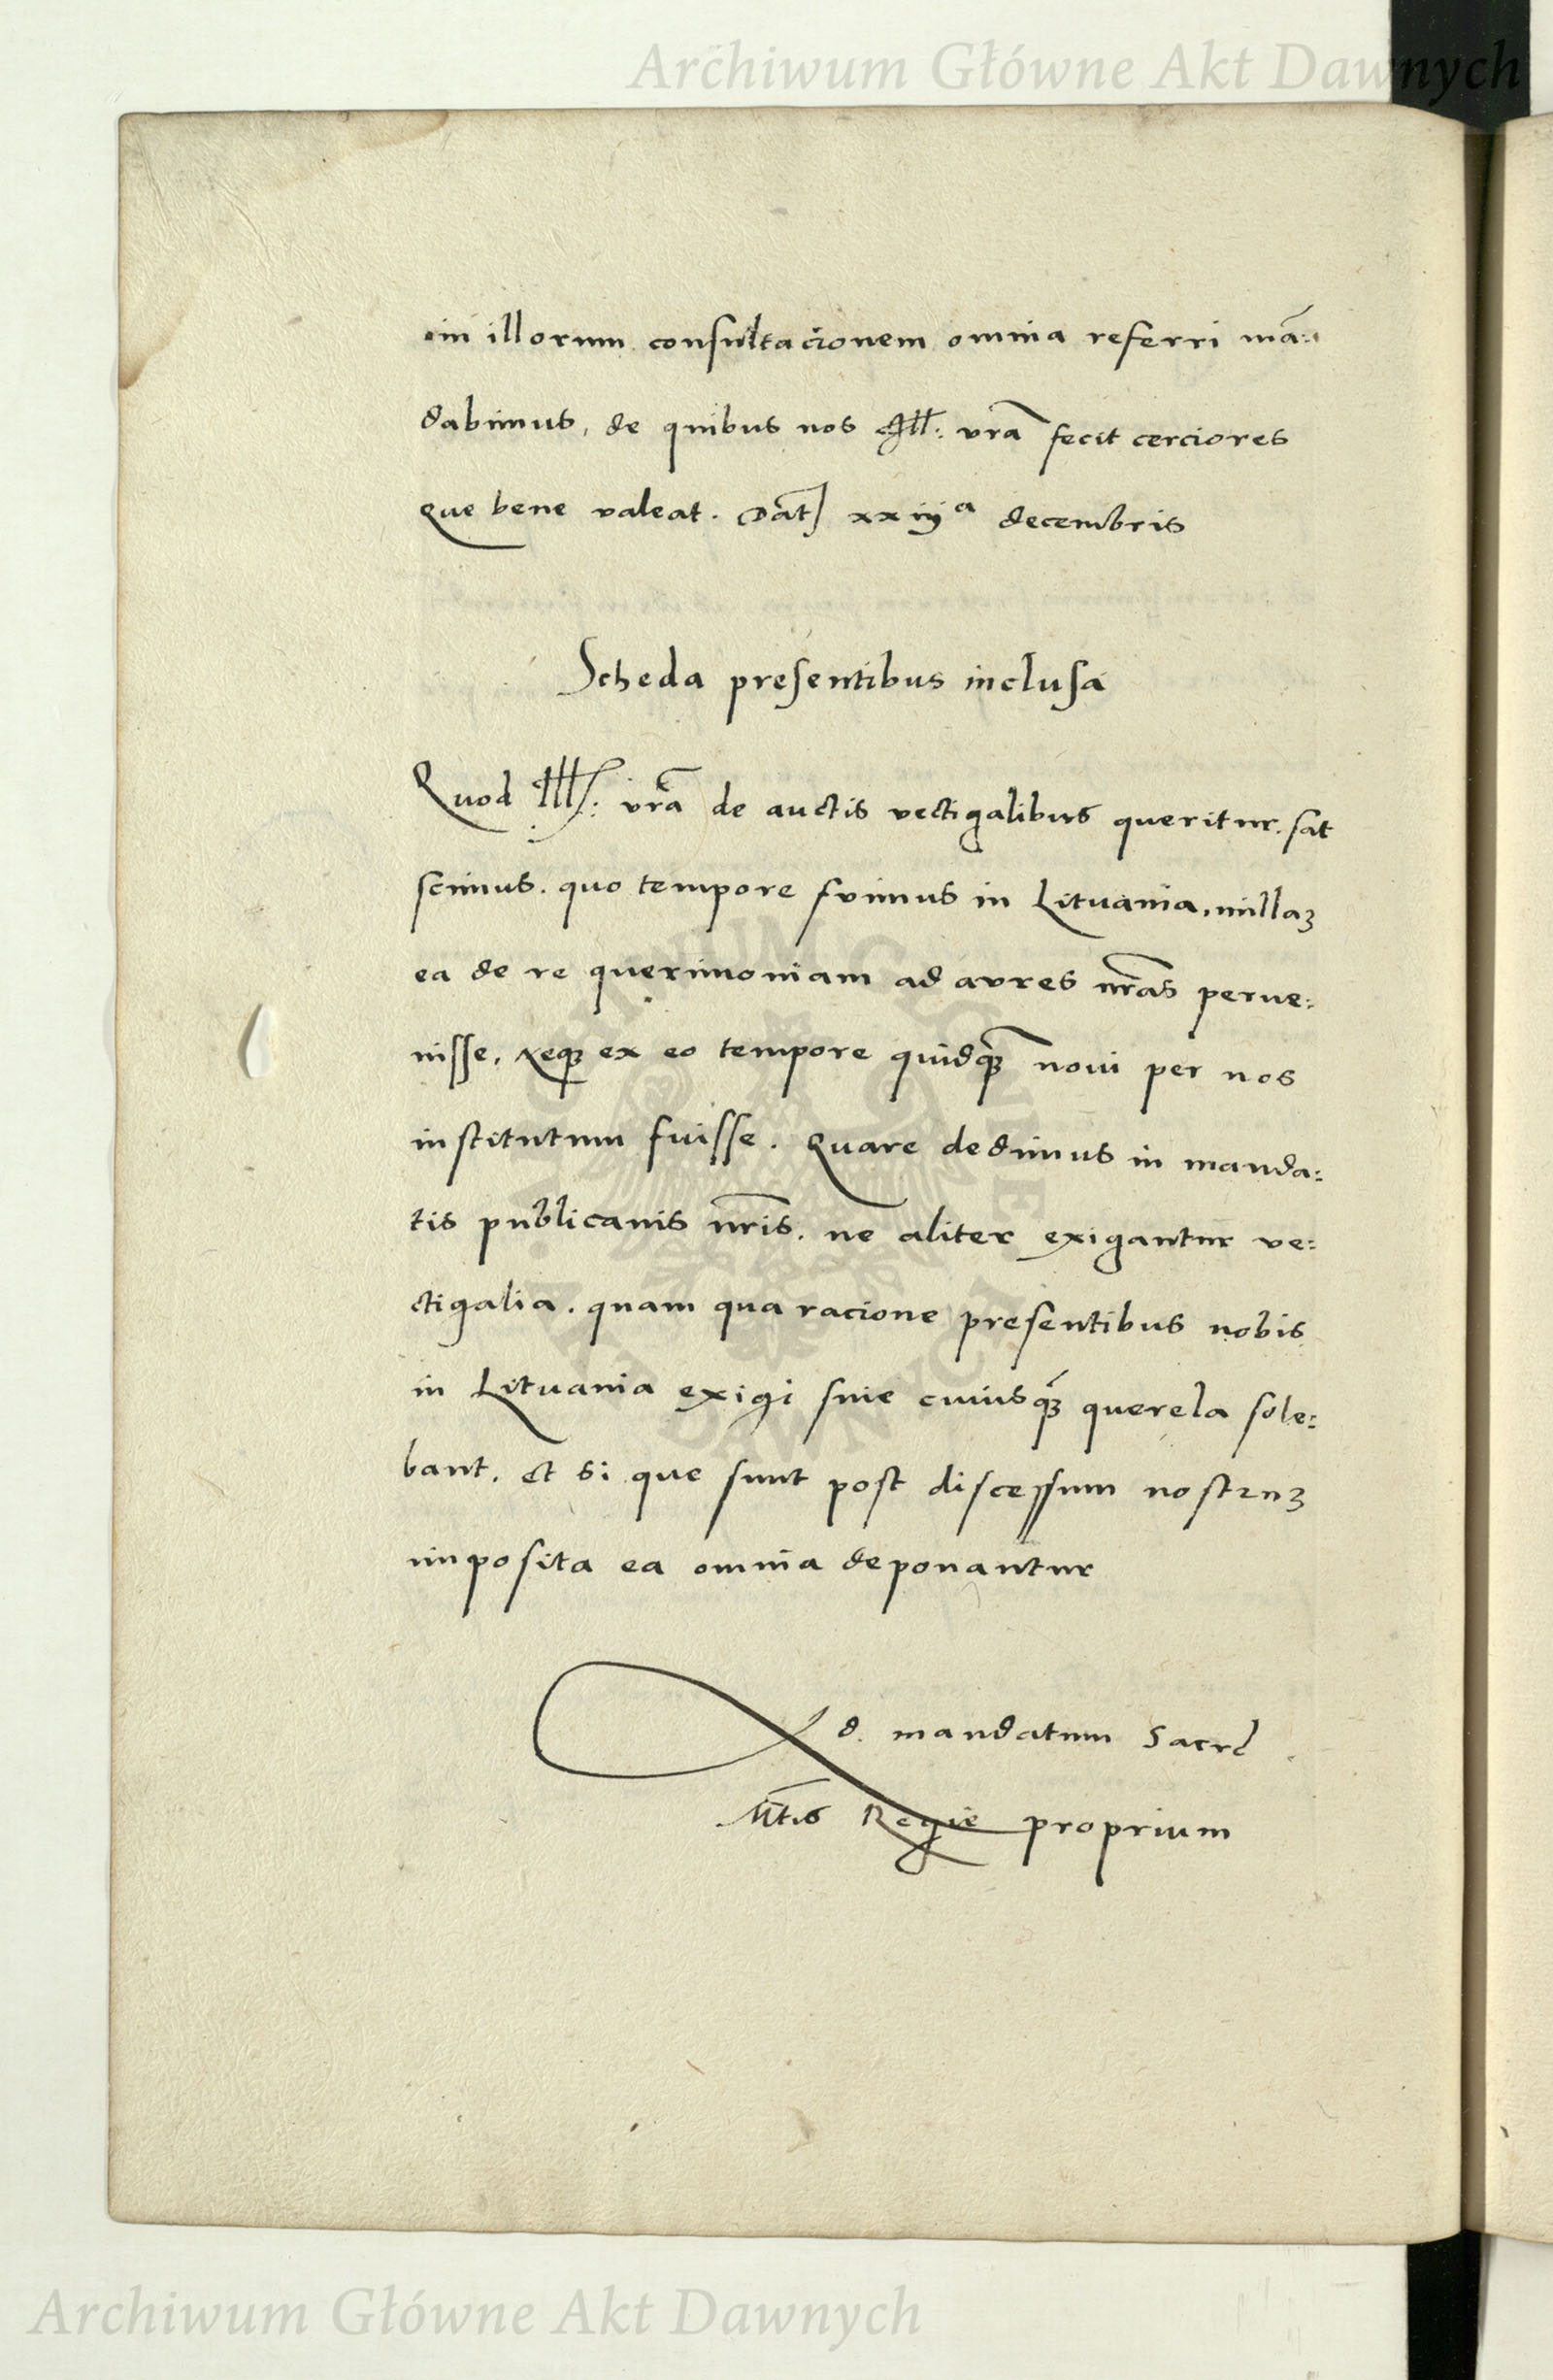 Archiwum Główne Akt Dawnych
in illorum consultacionem omnia referri mā:
dabimus, de quibus nos Ill: vr̃a fecit cerciores
Que bene valeat. Dat xxiijª decembris
Scheda presentibus inclusa
Quod Ill: vr̃a de auctis vectigalibus queritur. sat
scimus. quo tempore fuimus in Lituania, nullaꝫ
ea de re querimoniam ad aures nr̃as perue:
nisse, Neqꝫ ex eo tempore quidqꝫ̃ noui per nos
institutum fuisse. Quare dedimus in manda:
tis publicanis nr̃is. ne aliter exigantur ve:
ctigalia. quam qua racione presentibus nobis
in Lituania exigi sine cuiusqꝫ̃ querela sole:
bant. Et si que sunt post discessum nostruꝫ
imposita ea omnia deponantur
Ad. mandatum Sacre
Mt̃is Regie proprium
Archiwum Główne Akt Dawnych